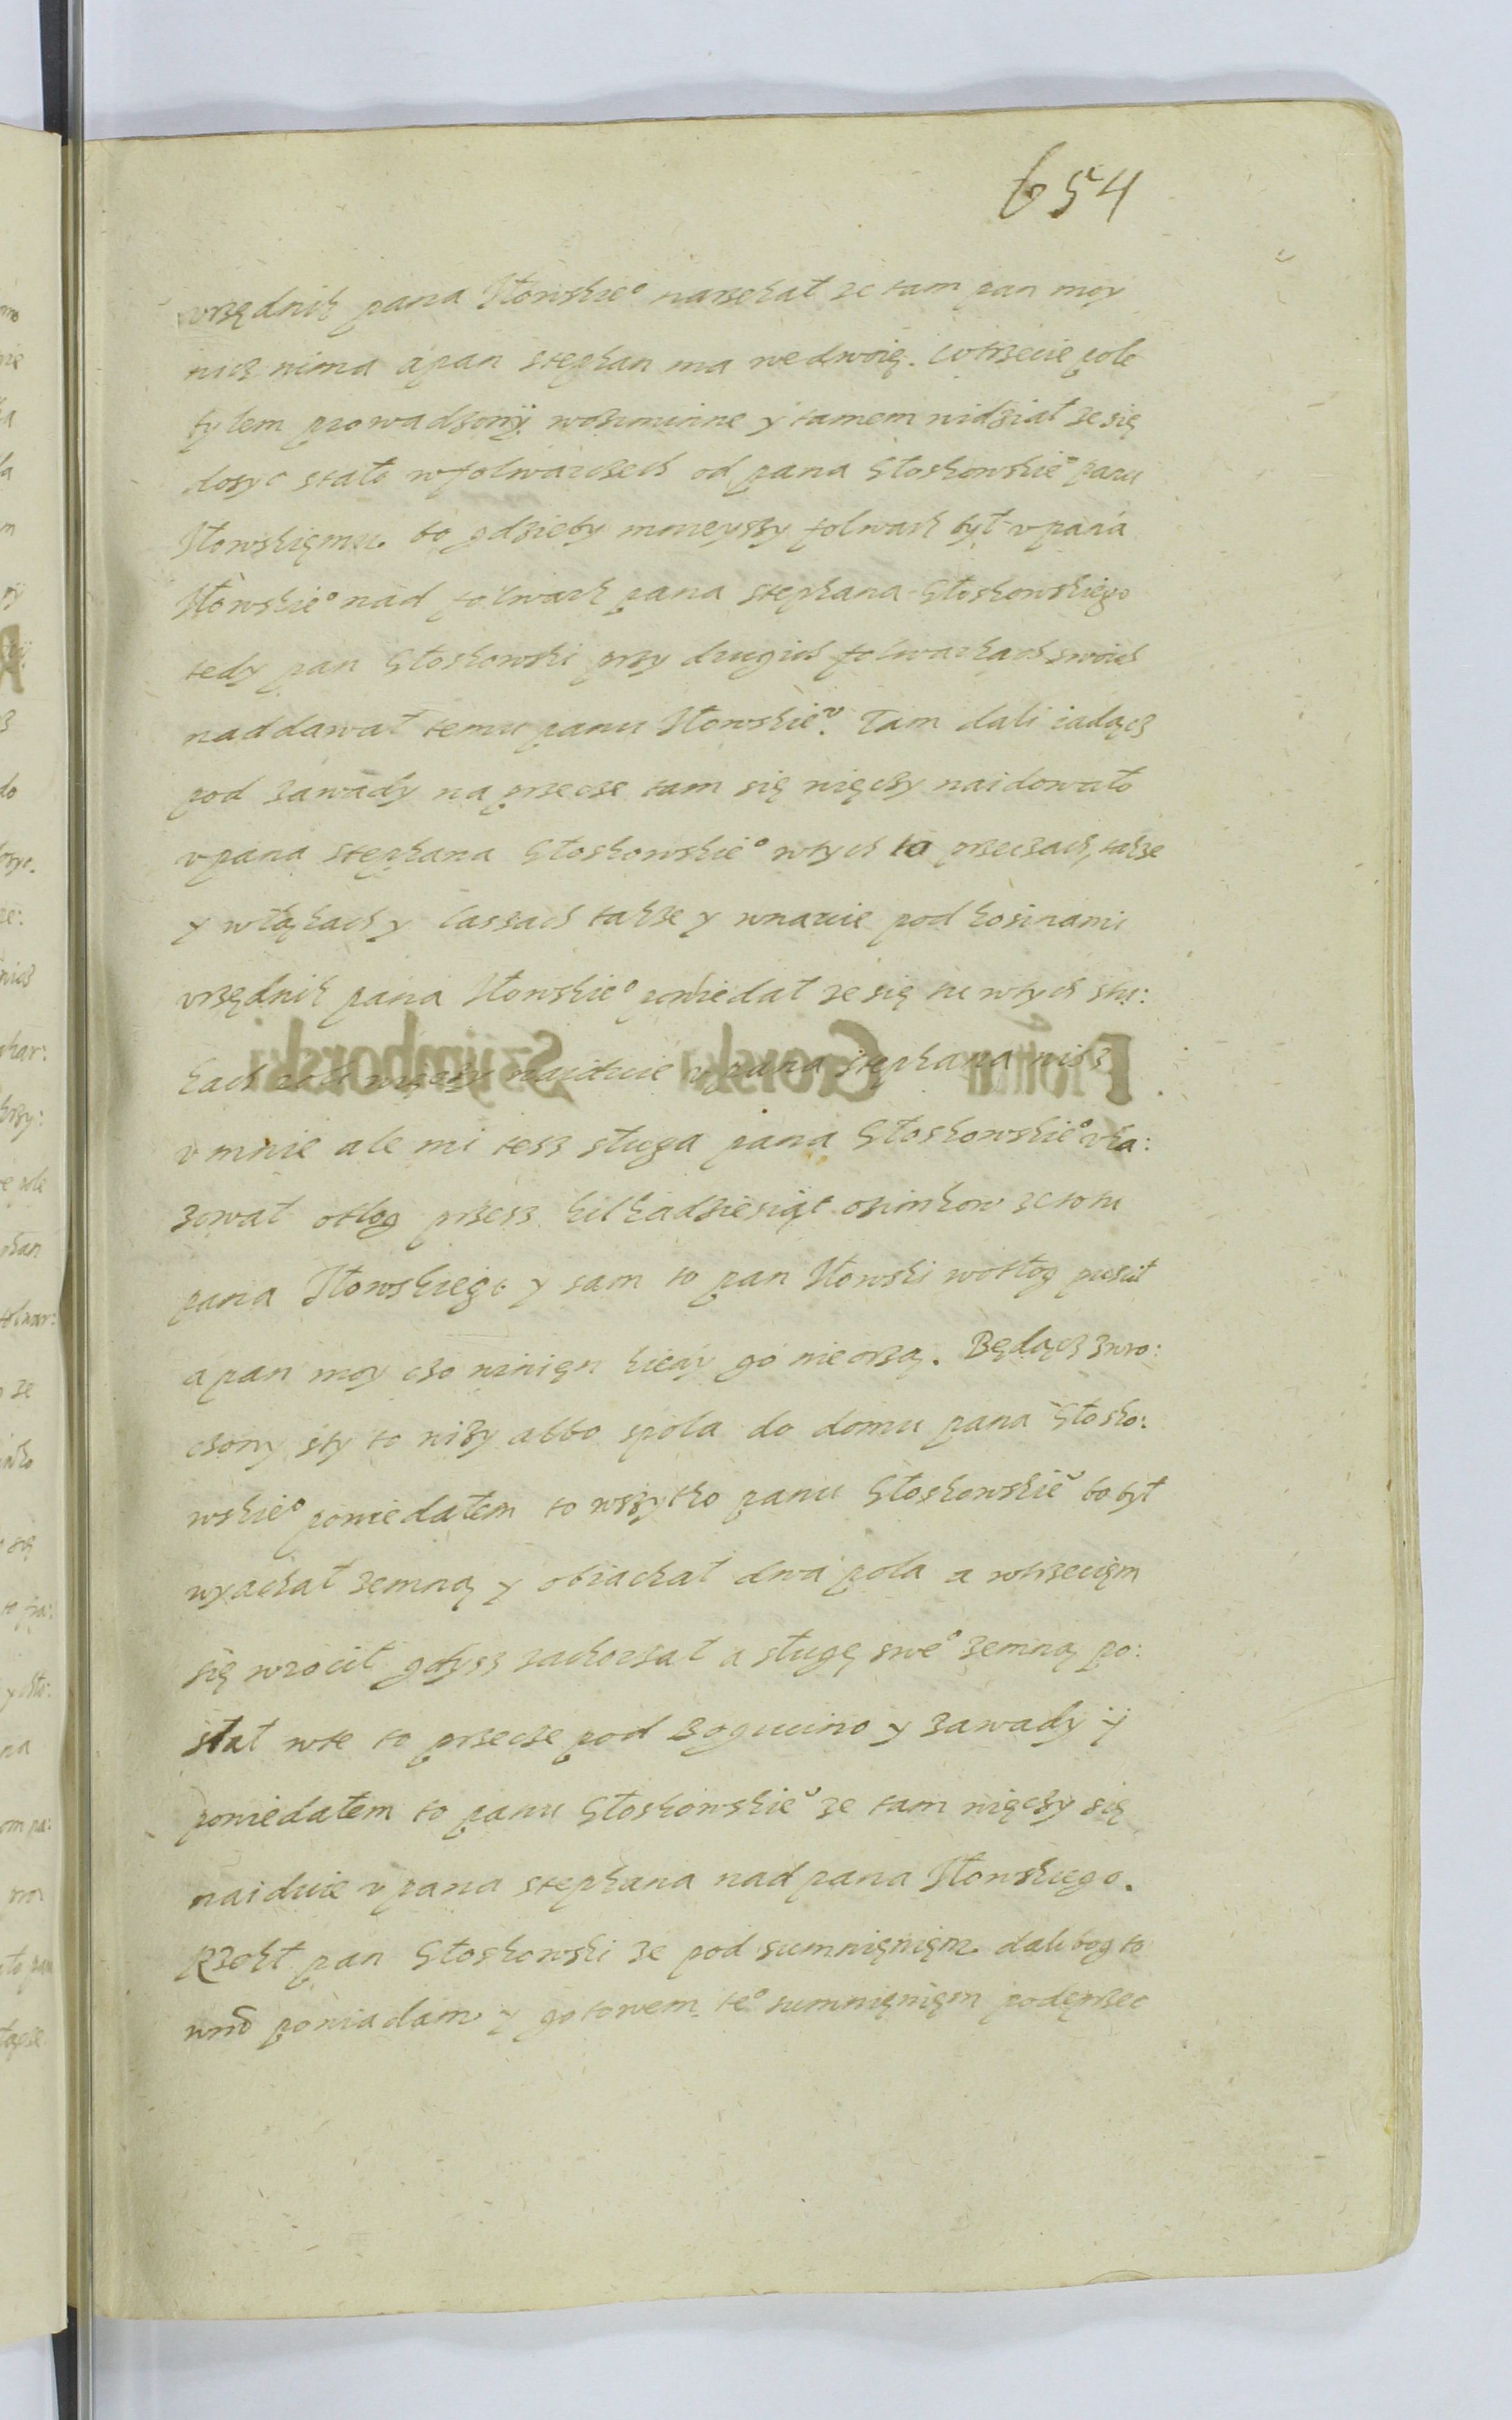 654
vrzędnik pana Iłowskie° narzekał ze tam pan moy
nicz nima a pan stephan ma wedwoię. W trzecie pole
tylem prowadzony wozimine y tamem widział ze się
dosyc stało w folwarczech od pana Głoskowskie° panu
Iłowskięmu bo gdzieby mnieyszy folwark był v pana
Iłowskie° nad folwark pana stephana Głoskowskiego
tedy pan Głoskowski przy drugich folwarkach swoich
naddawał temu panu Iłowskieᵛ. Tam dali iadącz
pod zawady na przecze tam się więczy naidowało
v pana stephana Głoskowskie° w tych to przeczach, takze
y w łąkach y lassach takze y wnawie pod kosinami
vrzędnik pana Iłowskie° powiedał ze się tu w tych sztu:
kach roli więczy naiduie v pana stephana nisz
v mnie ale mi tesz sługa pana Głoskowskie° vka:
zował otłog przesz kilkadziesiąt osimkow ze to tu
pana Iłowskiego y sam to pan Iłowski w otłog puscił
a pan moy czo winięn kiedy go nie orzą. Będącz zwro:
czony s ty to niwy albo s pola do domu pana Głosko:
wskie° powiedałem to wszytko panu Głoskowskieᵛ bo był
wyachał zemną y obiachał dwa pola a w trzecięm
się wrocił gdysz zachorzał a sługę swe° zemną po:
słał w te to przecze pod Bogucino y zawady y
powiedałem to panu Głoskowskieᵛ ze tam więczy się
naiduie v pana stephana nad pana Iłowskiego.
Rzekł pan Głoskowski ze pod sumnięnięm dalibog to
wm̄ powiadam y gotowem te° sumnięnięm podeprzec